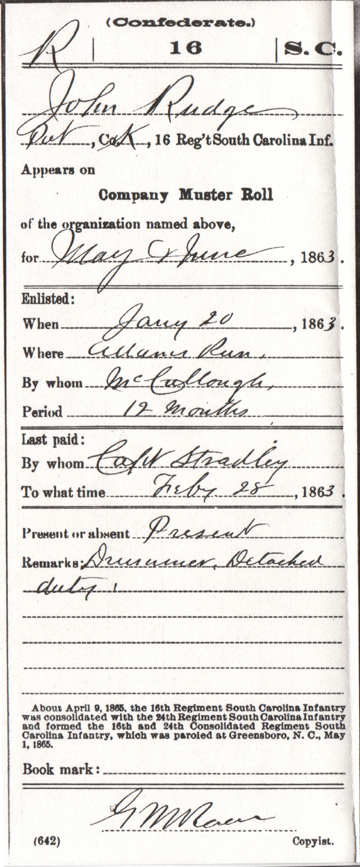 (Confederate.)
R | 16 | S. C.
John Rudge
Pvt, Co. K, 16 Reg't South Carolina Inf.
Appears on
Company Muster Roll
of the organization named above,
for May & June, 1863.
Enlisted:
When Jany 20, 1863.
Where Adams Run.
By whom McCullough,
Period 12 Months
Last paid:
By whom Capt Stradley
To what time Feby 28, 1863.
Present or absent Present
Remarks: Drummer, Detached
duty.
About April 9, 1865, the 16th Regiment South Carolina Infantry
was consolidated with the 24th Regiment South Carolina Infantry
and formed the 16th and 24th Consolidated Regiment South
Carolina Infantry, which was paroled at Greensboro, N. C., May
1, 1865.
Book mark:
(642) Copyist.